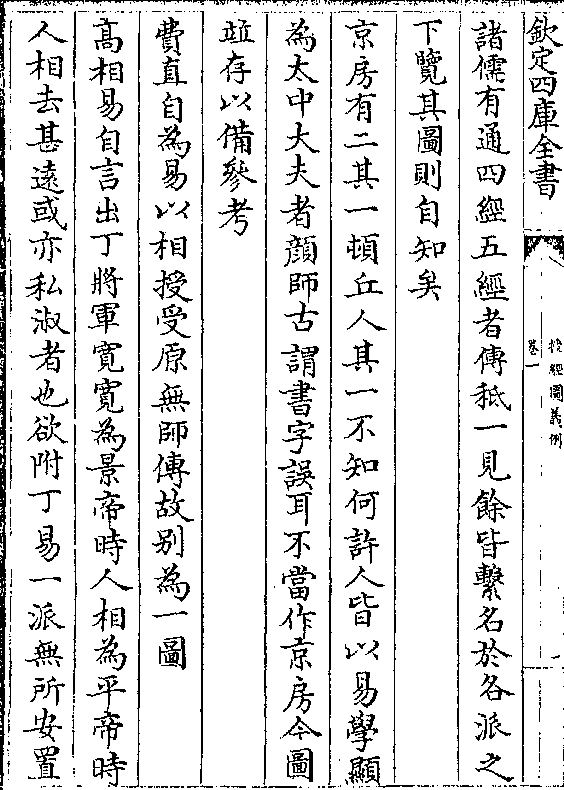 欽定四庫全書
授經圖義例
卷一
諸儒有通四經五經者傳秪一見餘皆繫名於各派之
下覽其圖則自知矣
京房有二其一頓丘人其一不知何許人皆以易學顯
為太中大夫者顔師古謂書字誤耳不當作京房今圖
竝存以備參考
費直自為易以相授受原無師傳故别為一圖
髙相易自言出丁將軍寛寛為景帝時人相為平帝時
人相去甚逺或亦私淑者也欲附丁易一派無所安置